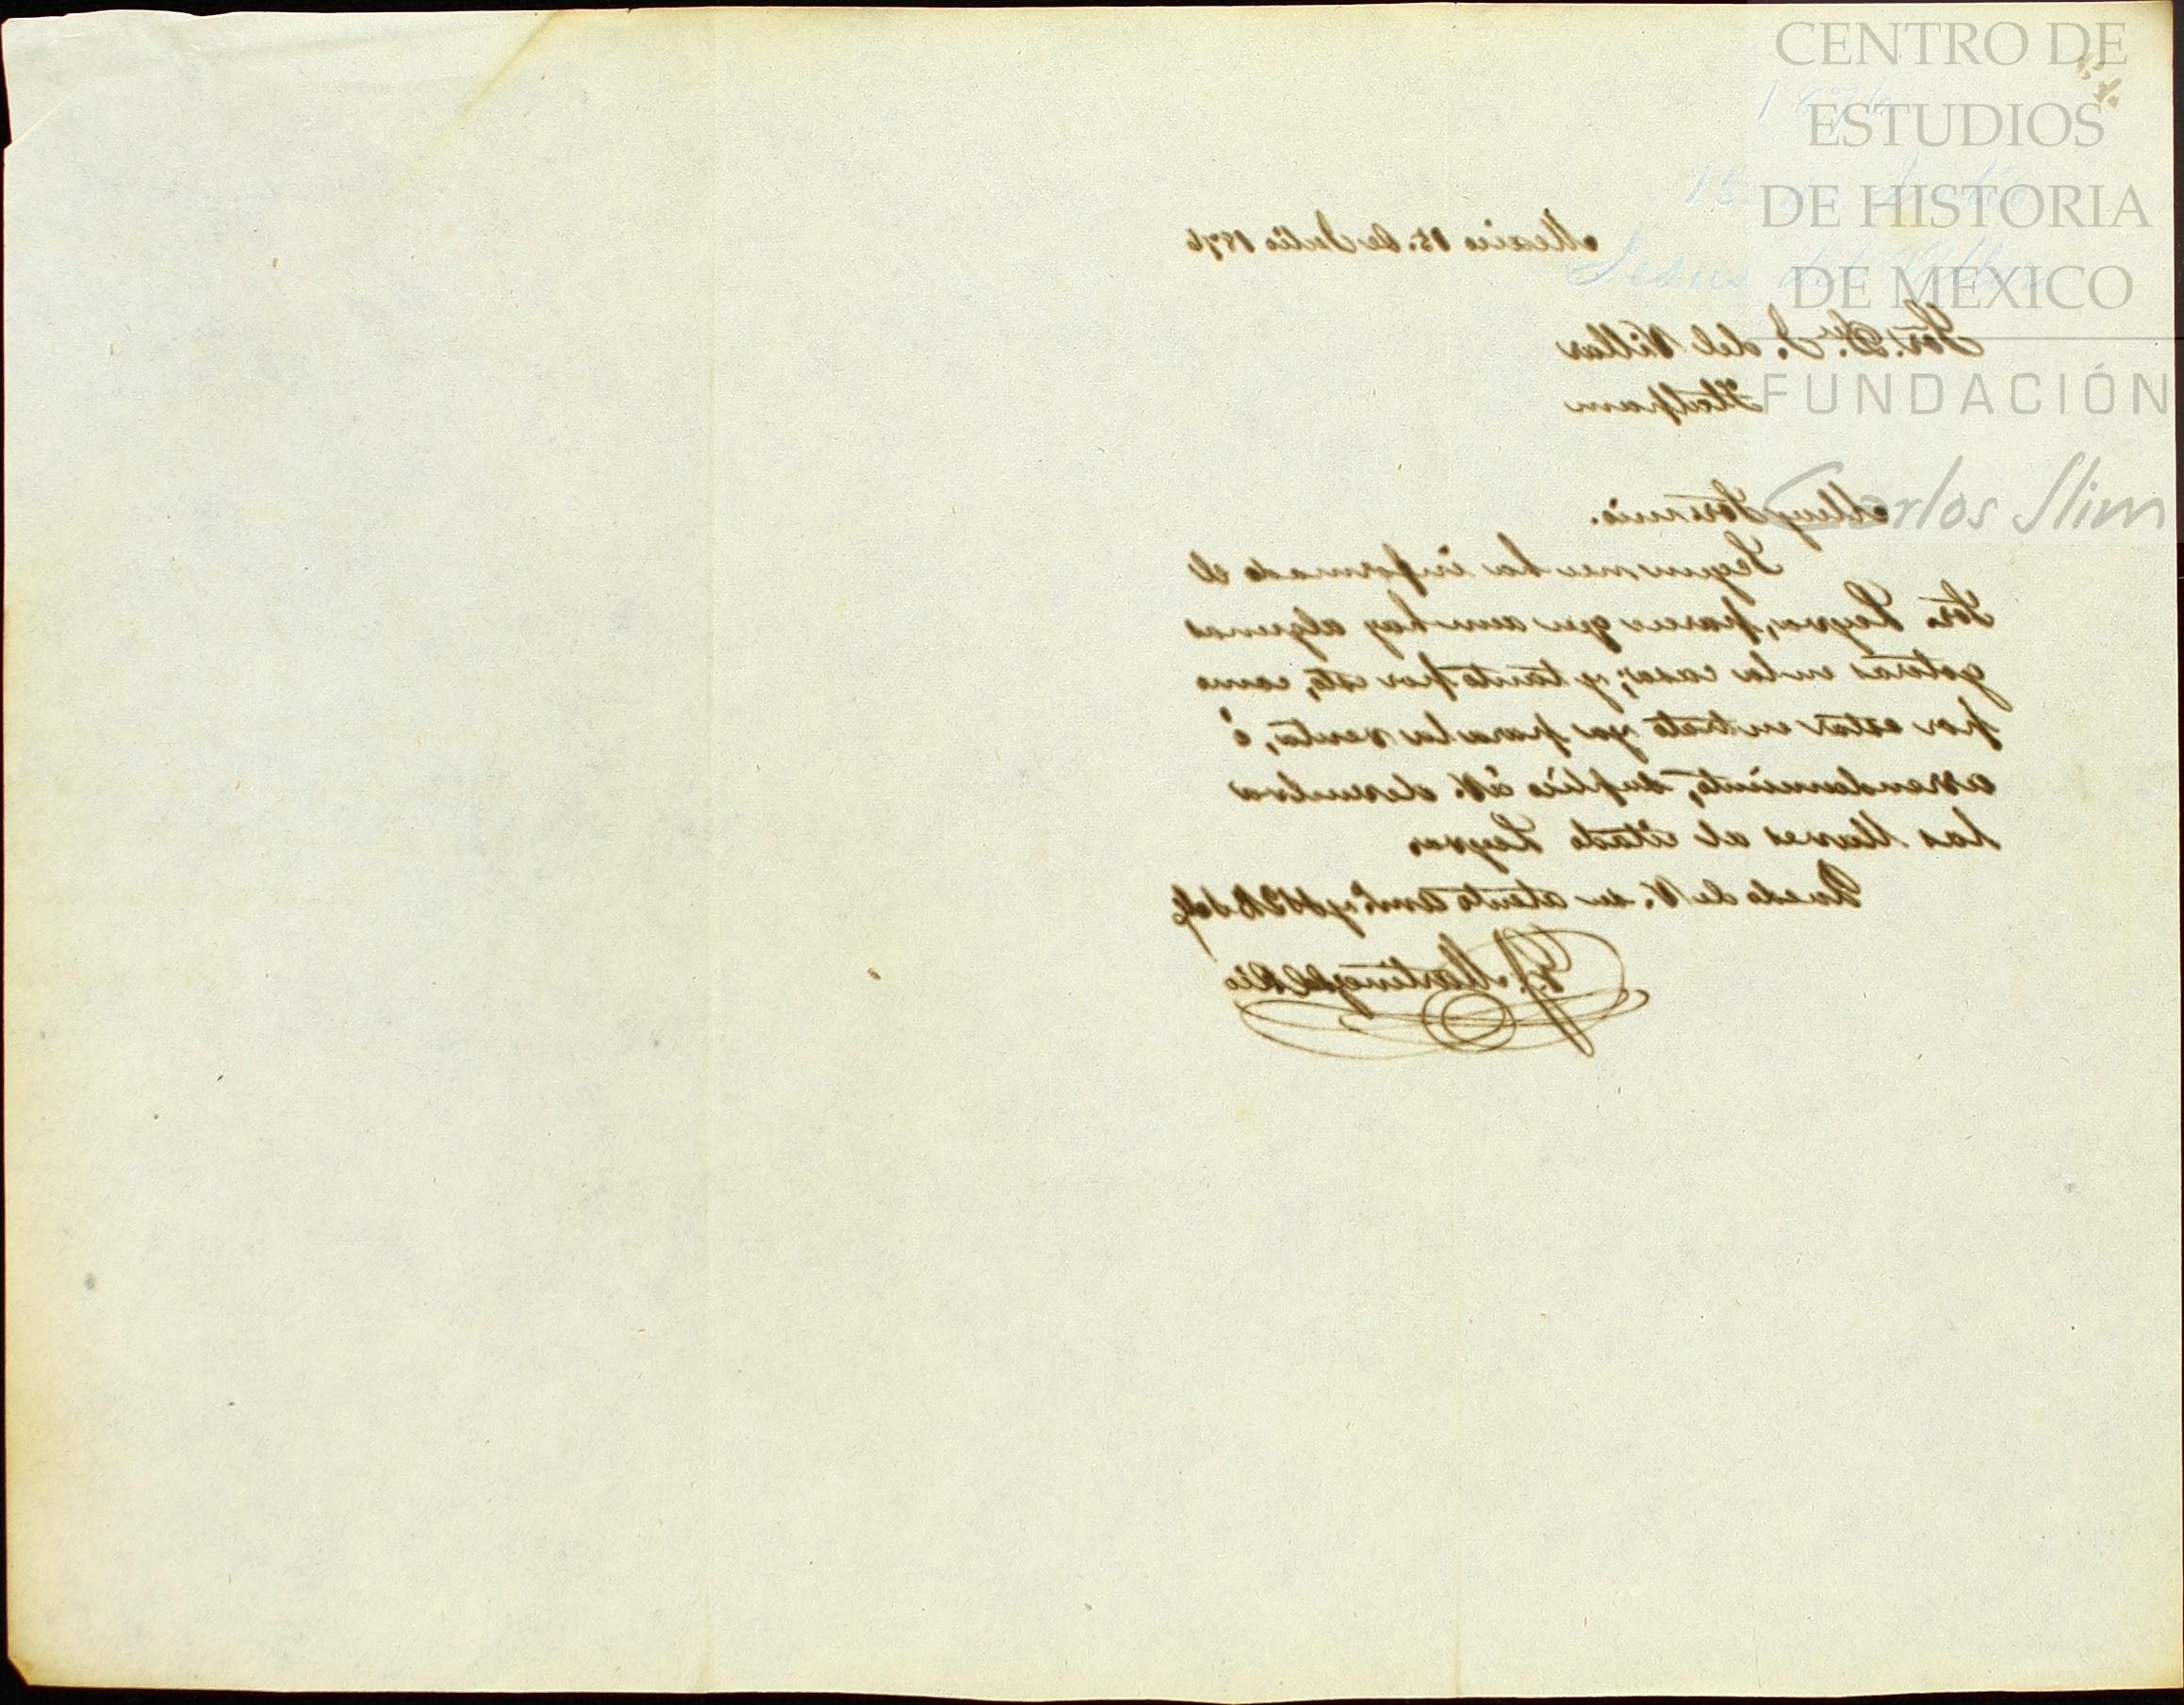 CENTRO DE
ESTUDIOS
DE HISTORIA
DE MÉXICO
FUNDACIÓN
Carlos Slim
1876
15 de Julio
Jesus del Villar
Mexico 15. de Julio 1876
Sor. Dn. J. del Villar
Tlalpam
Muy Sor. mio.
Segun me ha informado el
Sor. Leyva, parece que aun hay algunas
goteras en la casa; y tanto por esto, como
por estar en trato ya para la venta, ó
arrendamiento, suplico á V. devuelva
las llaves al citado Leyva.
Quedo de V. su atento
Martinez del Rio